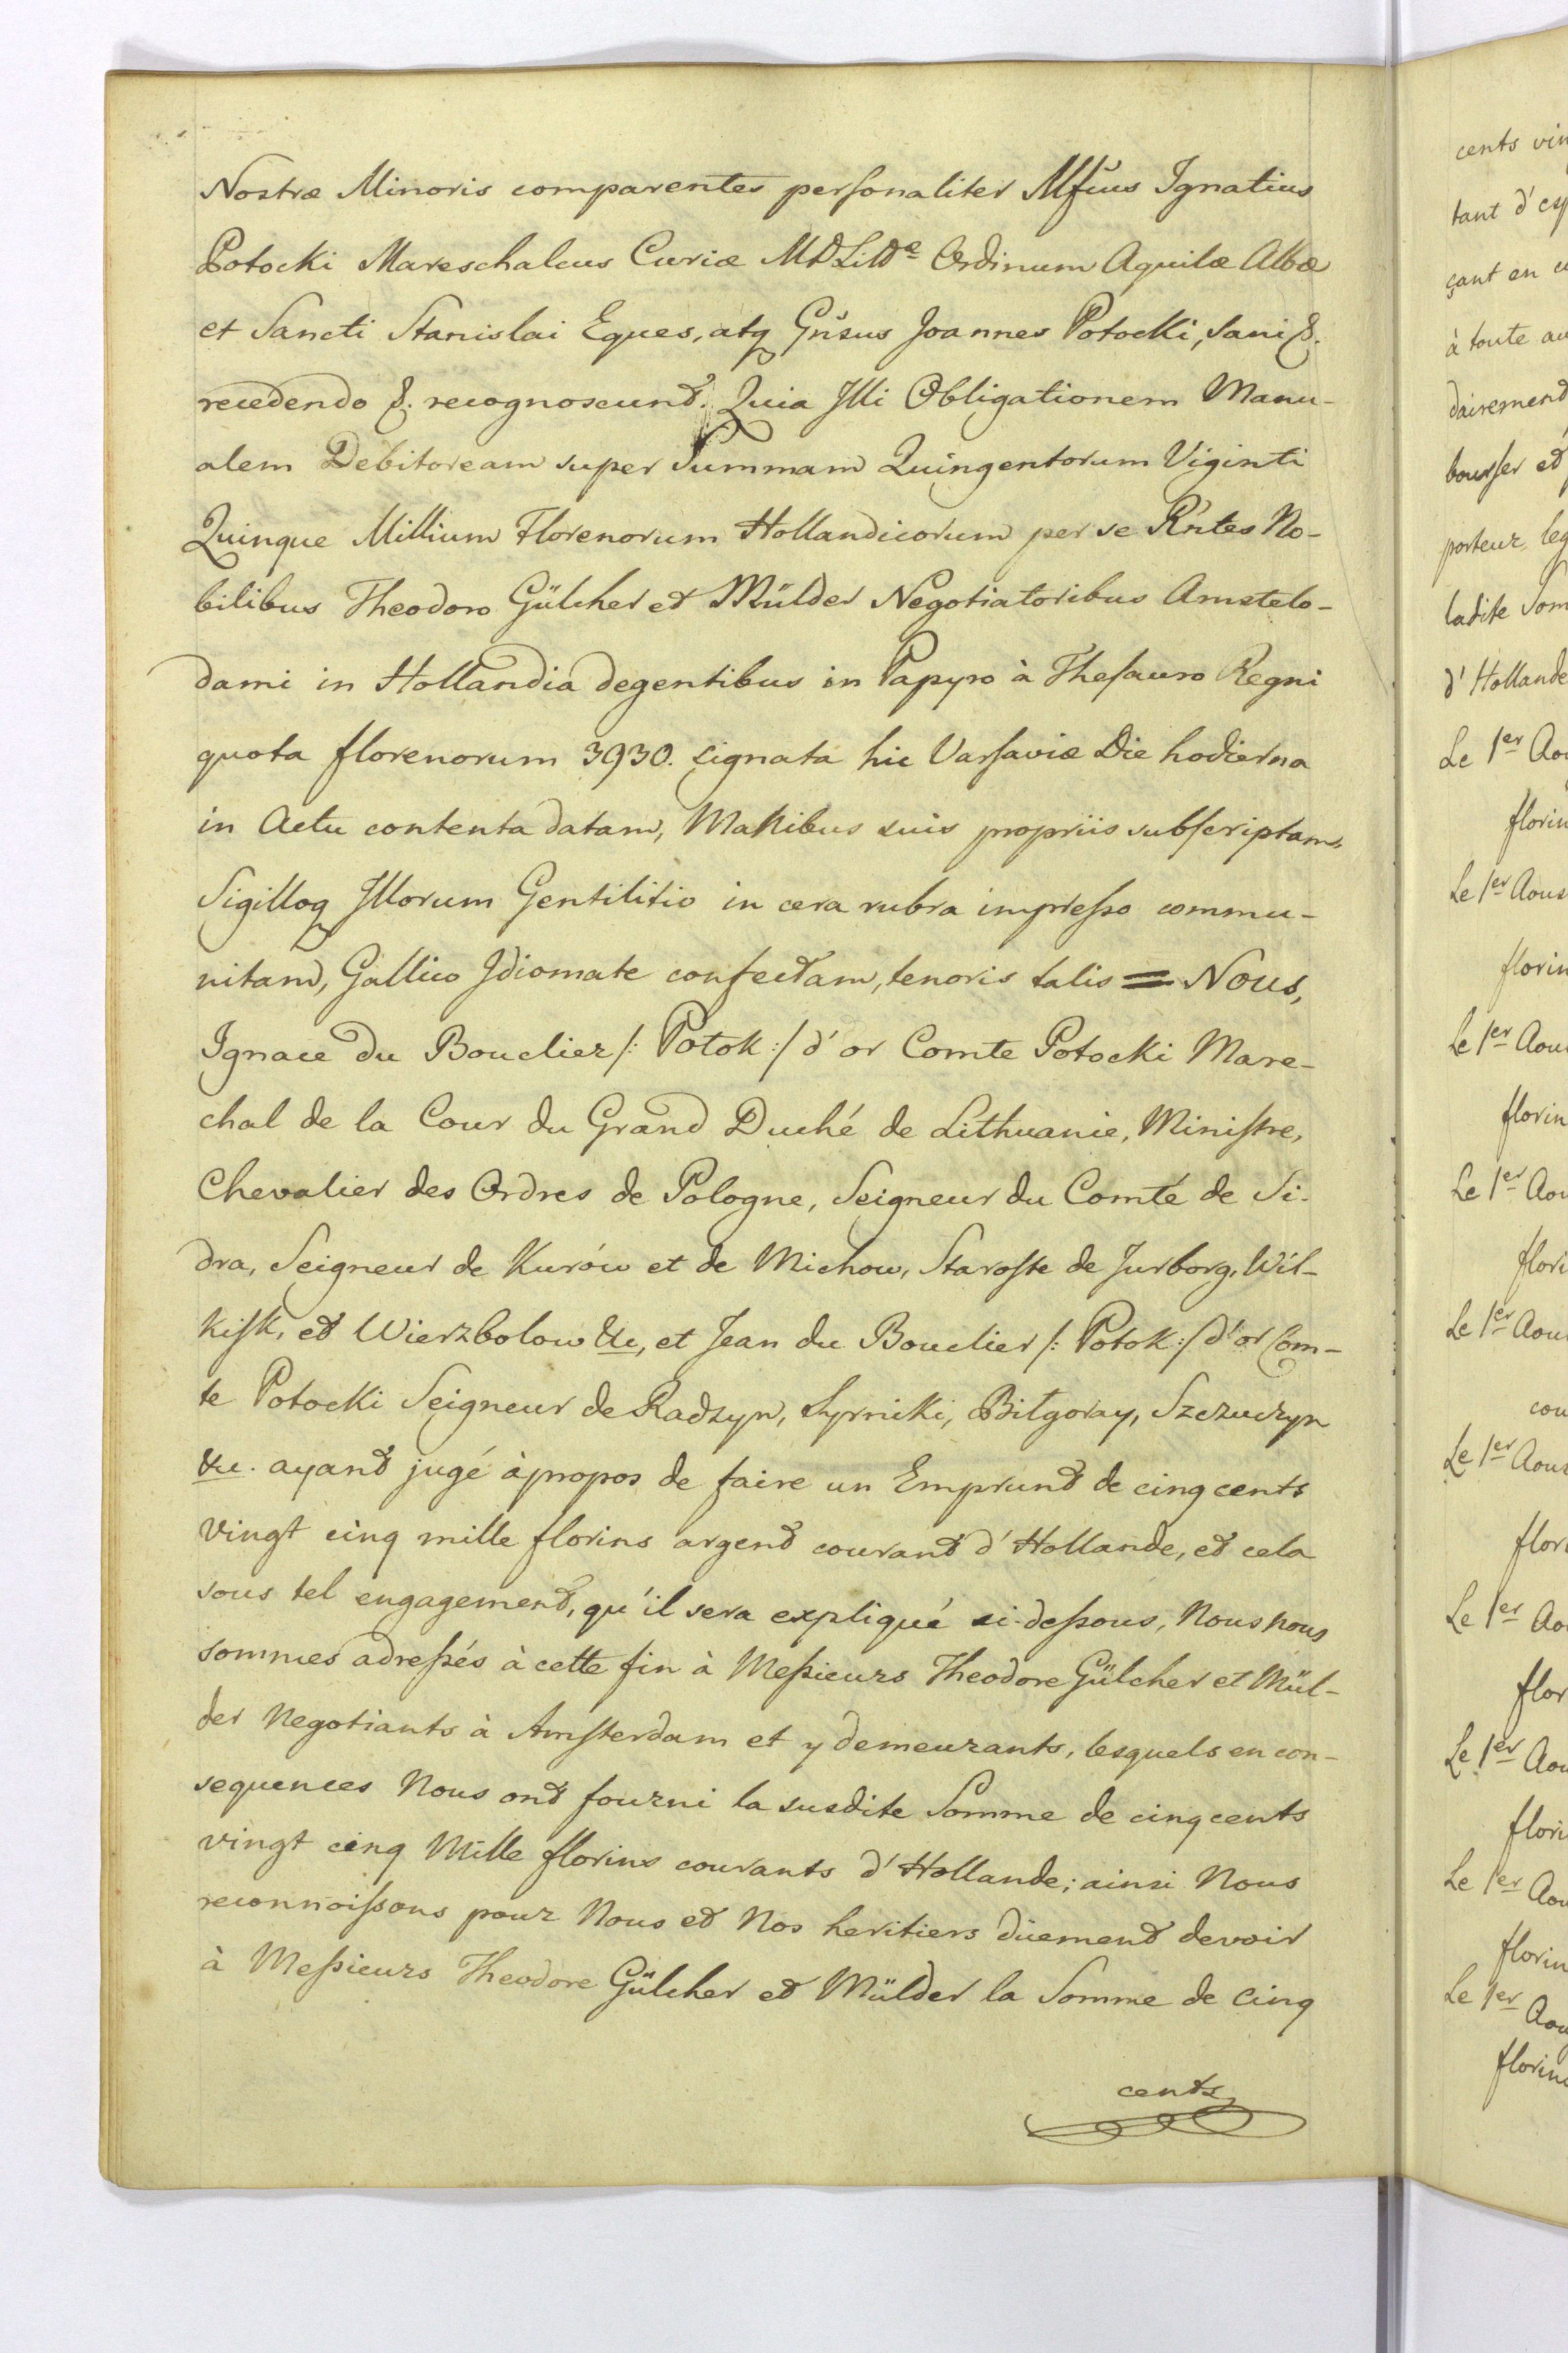 Nostræ Minoris comparentes personaliter Mfcus Ignatius
Potocki Mareschalcus Curiæ MDLittæ Ordinum Aquilæ Albæ
et Sancti Stanislai Eques, atq Gnsus Joannes Potocki, Sani &.
recedendo &. recognoscunt. Quia Illi Obligationem Manu-
alem Debitoream super Summam Quingentorum Viginti
Quinque Millium Florenorum Hollandicorum per se Rntes No-
bilibus Theodoro Gülcher et Mülder Negotiatoribus Amstelo-
dami in Hollandia degentibus in Papyro à Thesauro Regni
quota florenorum 3930. signata hic Varsaviæ Die hodierna
in Actu contenta datam, Manibus suis propriis subscriptam,
Sigilloq Illorum Gentilitio in cera rubra impresso commu-
nitam, Gallico Idiomate confectam, tenoris talis = Nous,
Ignace du Bouclier /: Potok :/ d'or Comte Potocki Mare-
chal de la Cour du Grand Duché de Lithuanie, Ministre,
Chevalier des Ordres de Pologne, Seigneur du Comté de Si-
dra, Seigneur de Kurów et de Michow, Staroste de Jurborg, Wil-
kisk, et Wierzbolow &c, et Jean du Bouclier /: Potok :/ d'or Com-
te Potocki Seigneur de Radzyn, Syrniki, Biłgoray, Szczuczyn
&c. ayant jugé àpropos de faire un Emprunt de cinq cents
vingt cinq mille florins argent courant d'Hollande, et cela
sous tel engagement, qu'il sera expliqué ci-dessous, Nous nous
sommes adressés à cette fin à Messieurs Theodore Gülcher et Mül-
der Negotiants à Amsterdam et y demeurants, lesquels en con-
sequences Nous ont fourni la susdite Somme de cinq cents
vingt cinq Mille florins courants d'Hollande; ainsi Nous
reconnoissons pour Nous et Nos heritiers düement devoir
à Messieurs Theodore Gülcher et Mülder la Somme de Cinq
cents
cents
tant d'
çant en
à toute
dairement
bourser et
porteur
ladite
d'Hollande
Le 1er
florin
Le 1er Aous
florin
Le 1er Aou
florin
Le 1er Aou
flori
Le 1er Aou
cou
Le 1er Aous
flor
Le 1er Ao
flor
Le 1er Aou
flori
Le 1er Aou
florin
Le 1er Aou
florin